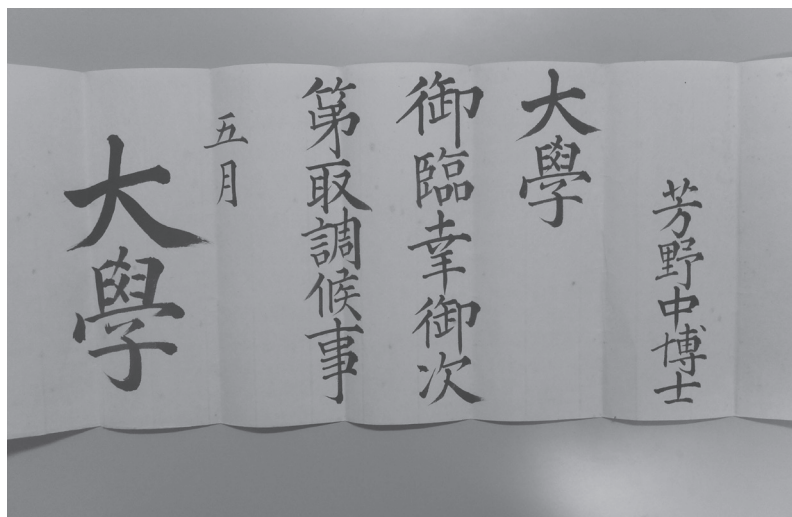 芳野中博士
大學
御臨幸御次
第取調候事
五月
大學